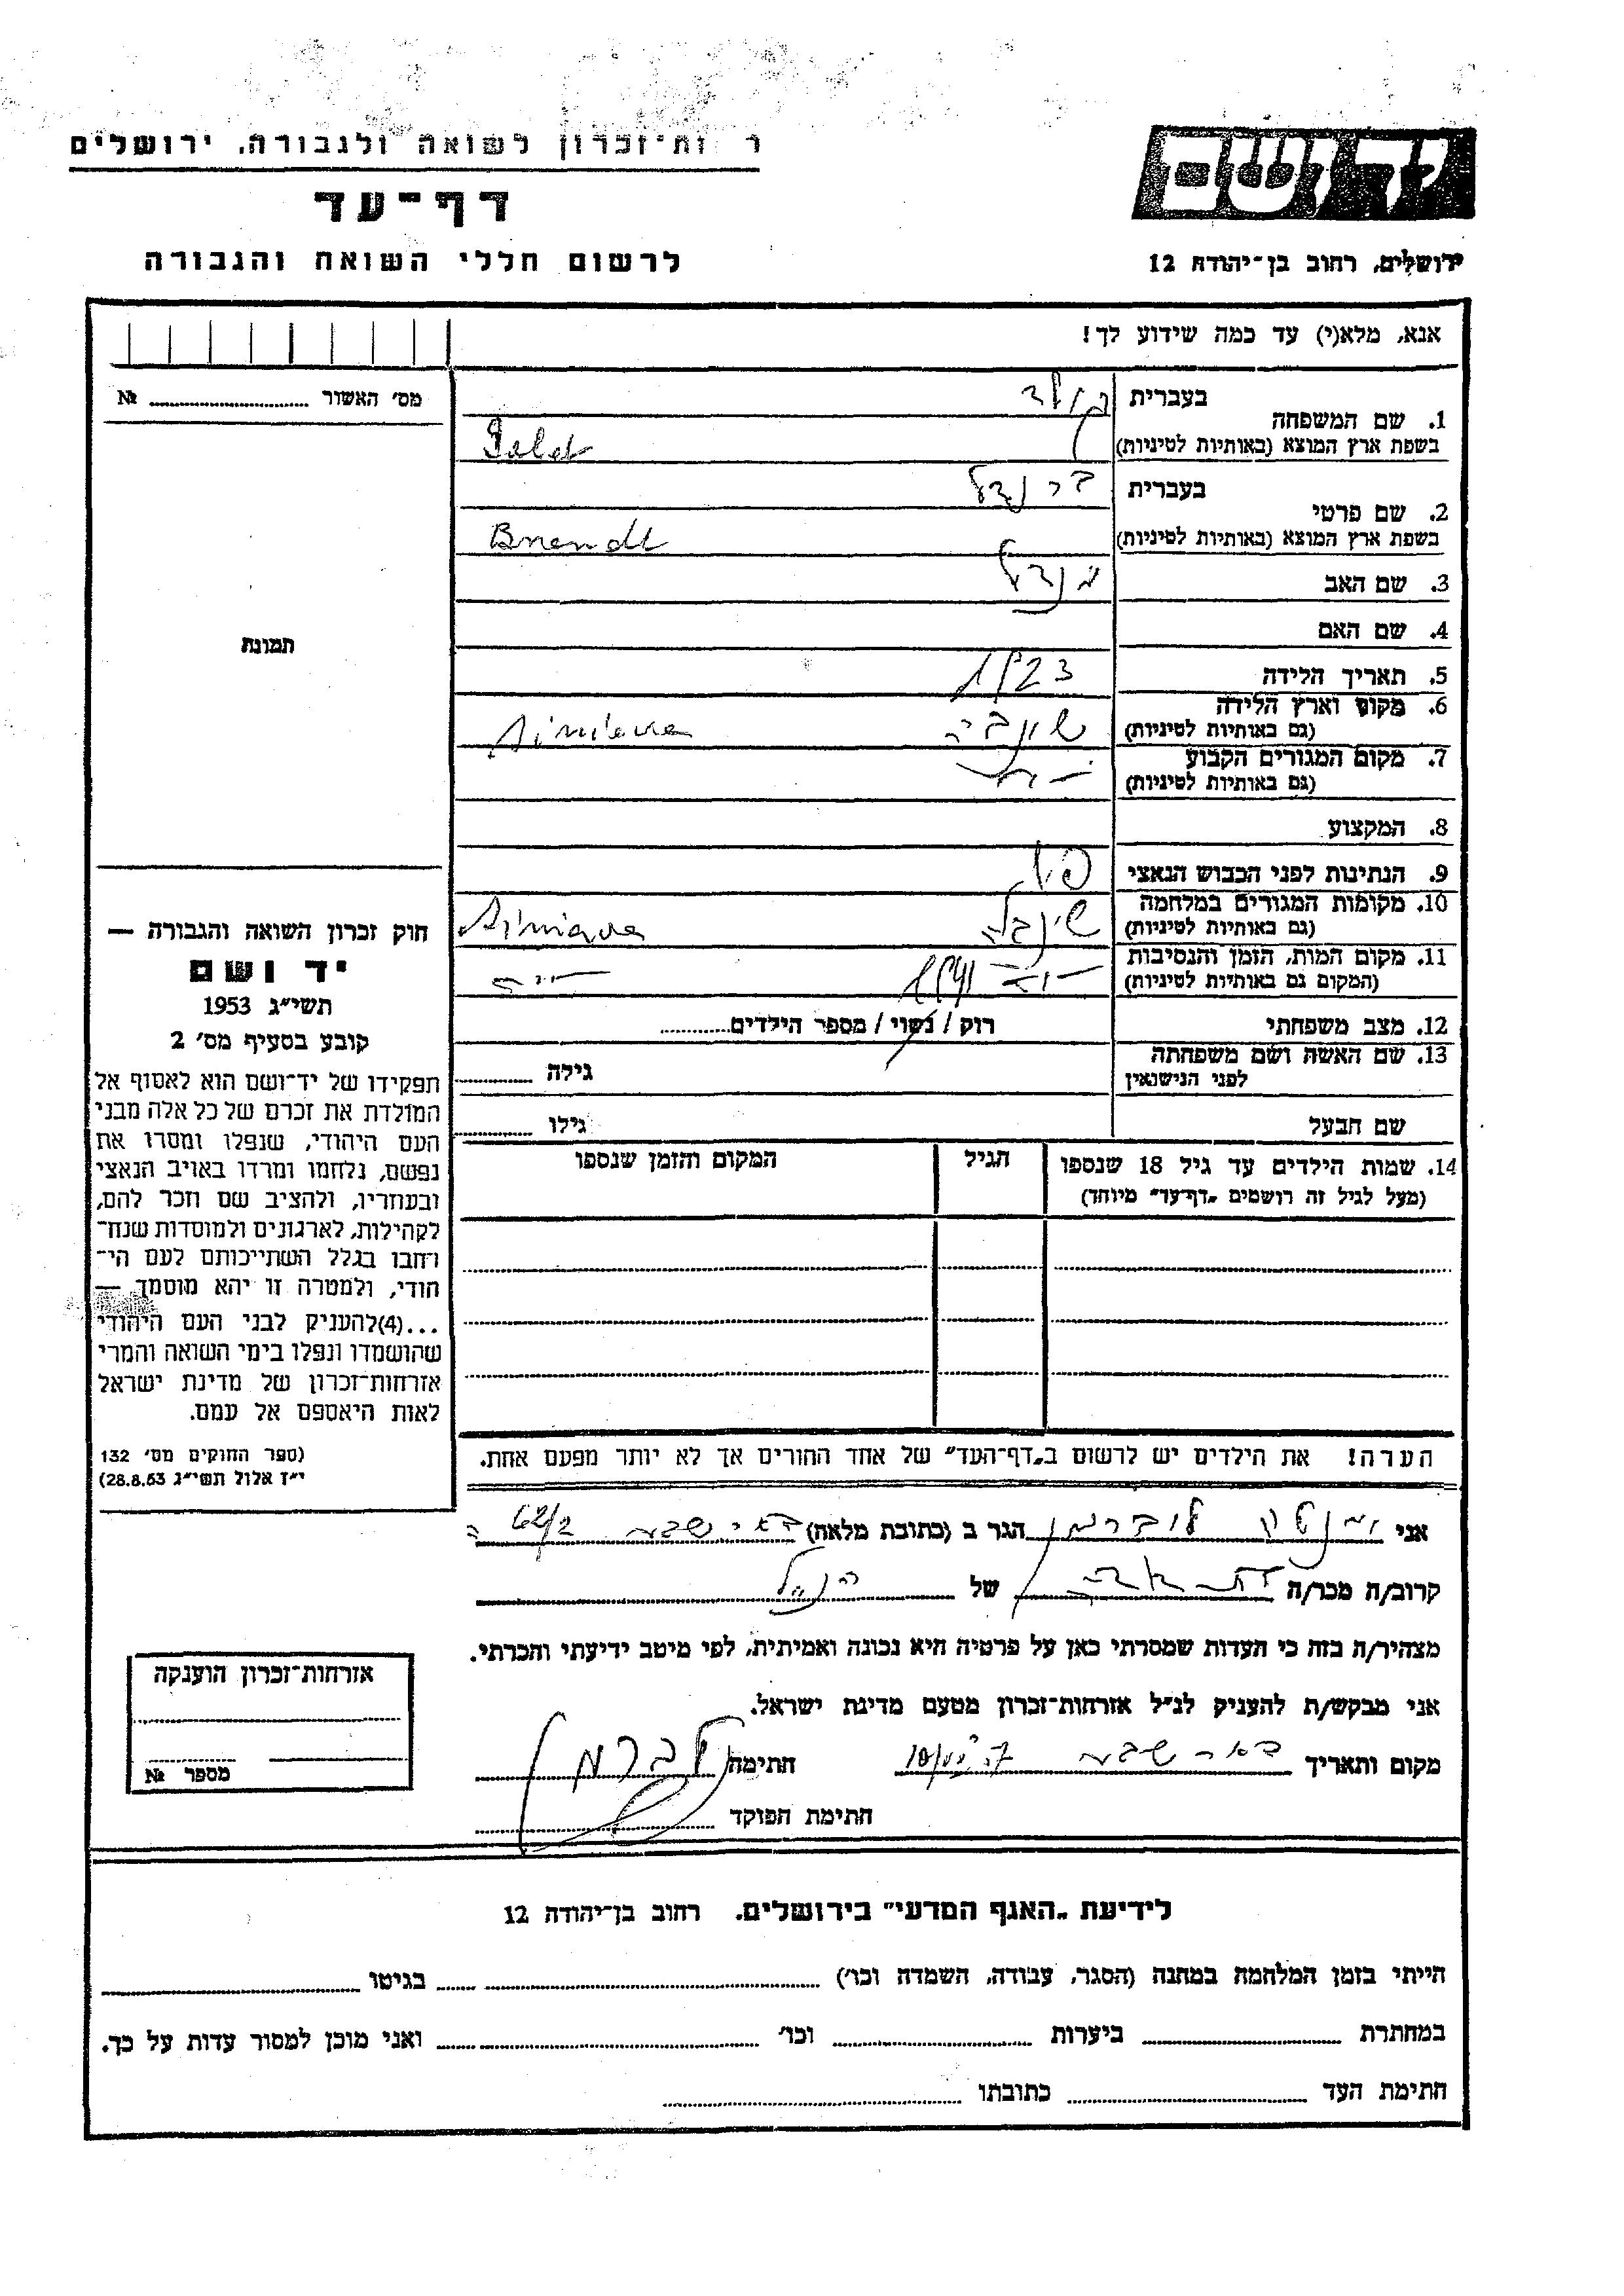 ר ות־זכרון לשואה ולגבורה, ירושלים
דף־עד
לרשום חללי השואה והגבורה
יד ושם
ירושלים, רחוב בן־יהודה 12
אנא, מלא(י) עד כמה שידוע לך!
מס׳ האשור № 
תמונה
1. שם המשפחה
בעברית
בשפת ארץ המוצא (באותיות לטיניות)
2. שם פרטי
בעברית ברנדל
בשפת ארץ המוצא (באותיות לטיניות) Brendl
3. שם האב מנדל
4. שם האם
5. תאריך הלידה 1923
6. מקום וארץ הלידה
(גם באותיות לטיניות)
7. מקום המגורים הקבוע
(גם באותיות לטיניות)
8. המקצוע
9. הנתינות לפני הכבוש הנאצי
10. מקומות המגורים במלחמה
(גם באותיות לטיניות)
11. מקום המות, הזמן והנסיבות 1941
(המקום גם באותיות לטיניות)
12. מצב משפחתי רוק / נשוי / מספר הילדים
13. שם האשה ושם משפחתה
לפני הנישואין
גילה
שם הבעל גילו
14. שמות הילדים עד גיל 18 שנספו
(מעל לגיל זה רושמים „דף־עד״ מיוחד)
הגיל
המקום והזמן שנספו
הערה! את הילדים יש לרשום ב„דף־העד״ של אחד ההורים אך לא יותר מפעם אחת.
חוק זכרון השואה והגבורה —
יד ושם
תשי״ג 1953
קובע בסעיף מס׳ 2
תפקידו של יד־ושם הוא לאסוף אל
המולדת את זכרם של כל אלה מבני
העם היהודי, שנפלו ומסרו את
נפשם, נלחמו ומרדו באויב הנאצי
ובעוזריו, ולהציב שם וזכר להם,
לקהילות, לארגונים ולמוסדות שנח־
רבו בגלל השתייכותם לעם הי־
הודי, ולמטרה זו יהא מוסמך —
...(4) להעניק לבני העם היהודי
שהושמדו ונפלו בימי השואה והמרי
אזרחות־זכרון של מדינת ישראל
לאות היאספם אל עמם.
(ספר החוקים מס׳ 132
י״ז אלול תשי״ג 28.8.53)
אני לוברמן הגר ב (כתובת מלאה) באר שבע 62/2
קרוב/ה מכר/ה של הנ״ל
מצהיר/ה בזה כי העדות שמסרתי כאן על פרטיה היא נכונה ואמיתית, לפי מיטב ידיעתי והכרתי.
אני מבקש/ת להעניק לנ״ל אזרחות־זכרון מטעם מדינת ישראל.
מקום ותאריך באר שבע חתימה
חתימת הפוקד
אזרחות־זכרון הוענקה
מספר №
לידיעת „האגף המדעי״ בירושלים, רחוב בן־יהודה 12
הייתי בזמן המלחמה במחנה (הסגר, עבודה, השמדה וכו׳) בגיטו
במחתרת ביערות וכו׳ ואני מוכן למסור עדות על כך.
חתימת העד כתובתו